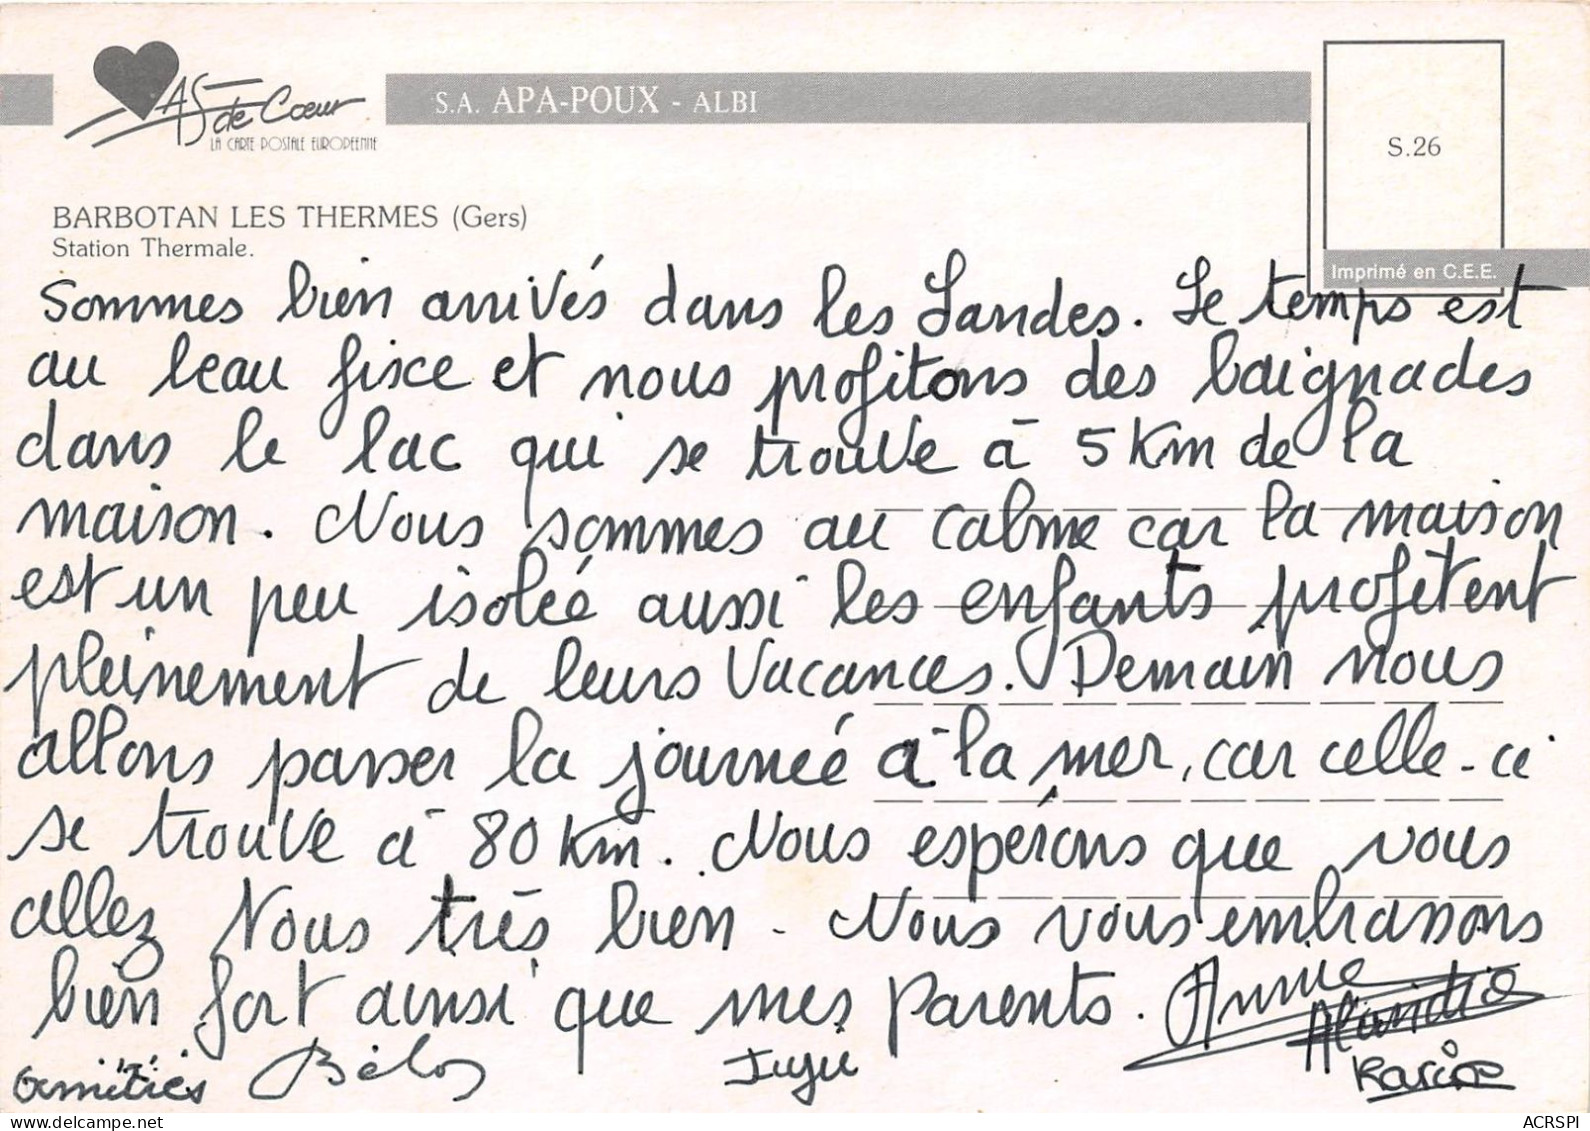 As de Cœur
LA CARTE POSTALE EUROPEENNE
S.A. APA-POUX - ALBI
S.26
BARBOTAN LES THERMES (Gers)
Station Thermale.
Imprimé en C.E.E.
Sommes bien arrivés dans les Landes. Le temps est
au beau fisce et nous profitons des baignades
dans le lac qui se trouve à 5 Km de la
maison. Nous sommes au calme car la maison
est un peu isolée aussi les enfants profitent
pleinement de leurs vacances. Demain nous
allons passer la journée à la mer, car celle-ci
se trouve à 80 Km. Nous espérons que vous
allez Nous très bien. Nous vous embrassons
bien fort ainsi que mes parents. Annie
amitiés Juju Karine
ACRSPI